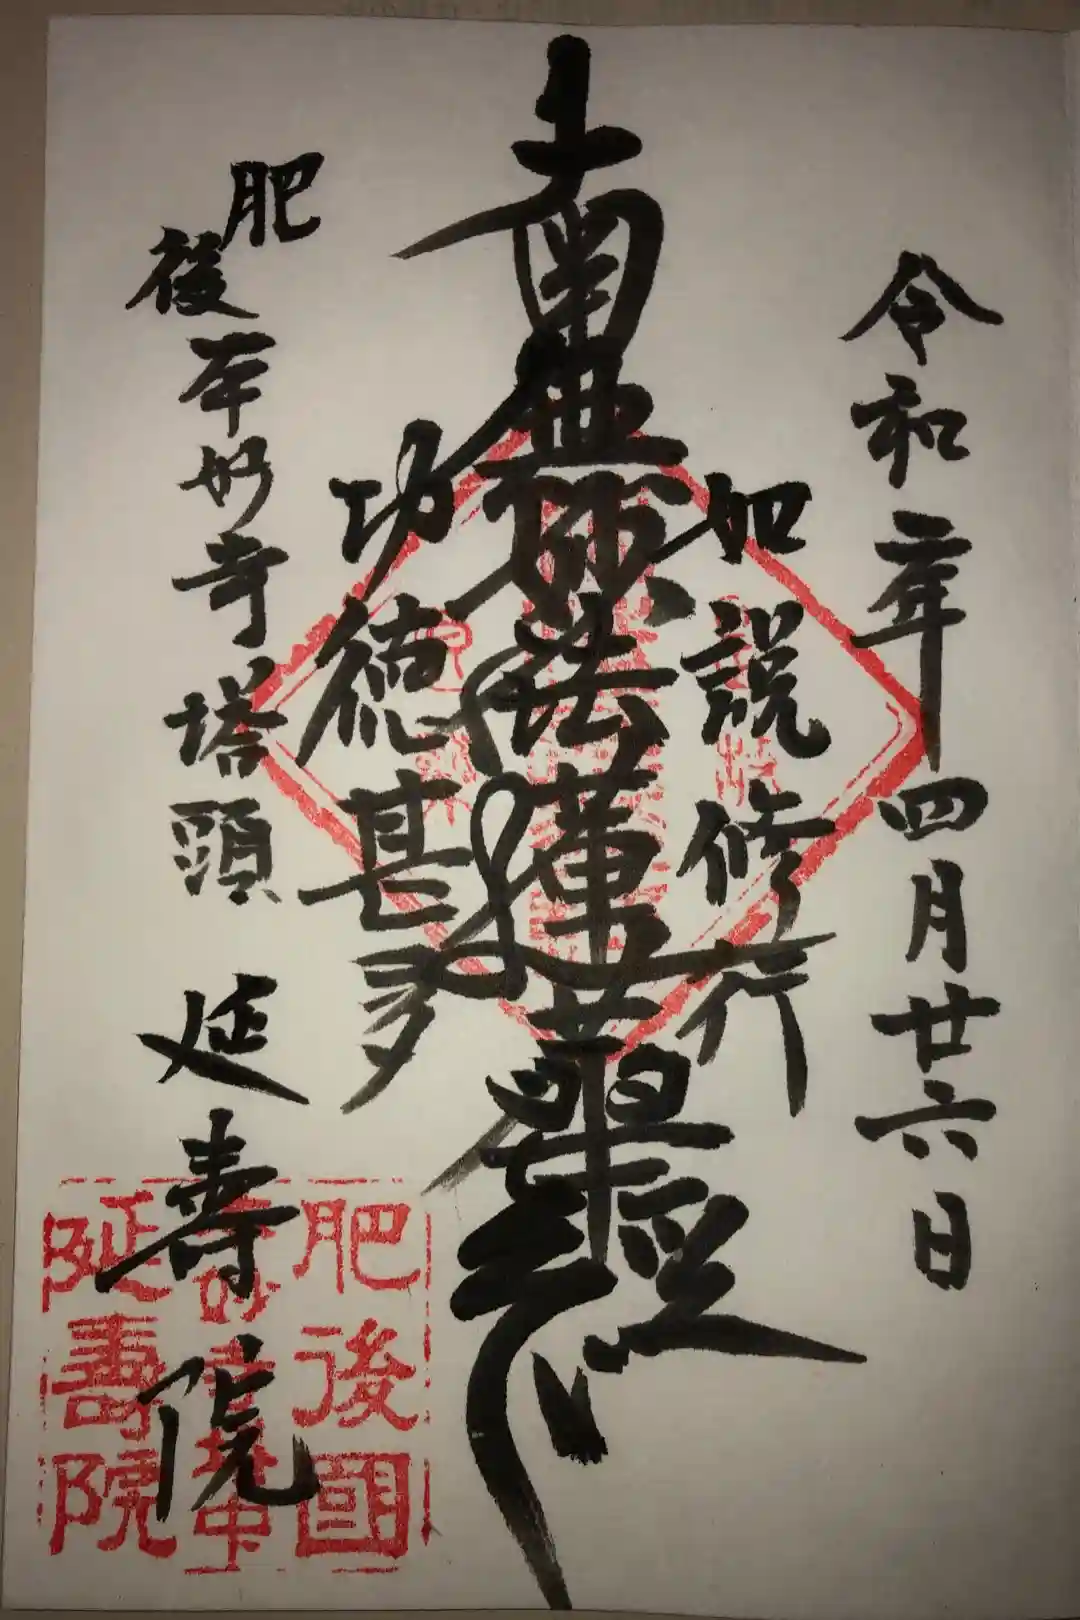 令和二年四月廿六日
如説修行
南無妙法蓮華經
功徳甚多
肥後本妙寺塔頭 延壽院
肥後國
妙寺塔中
延壽院